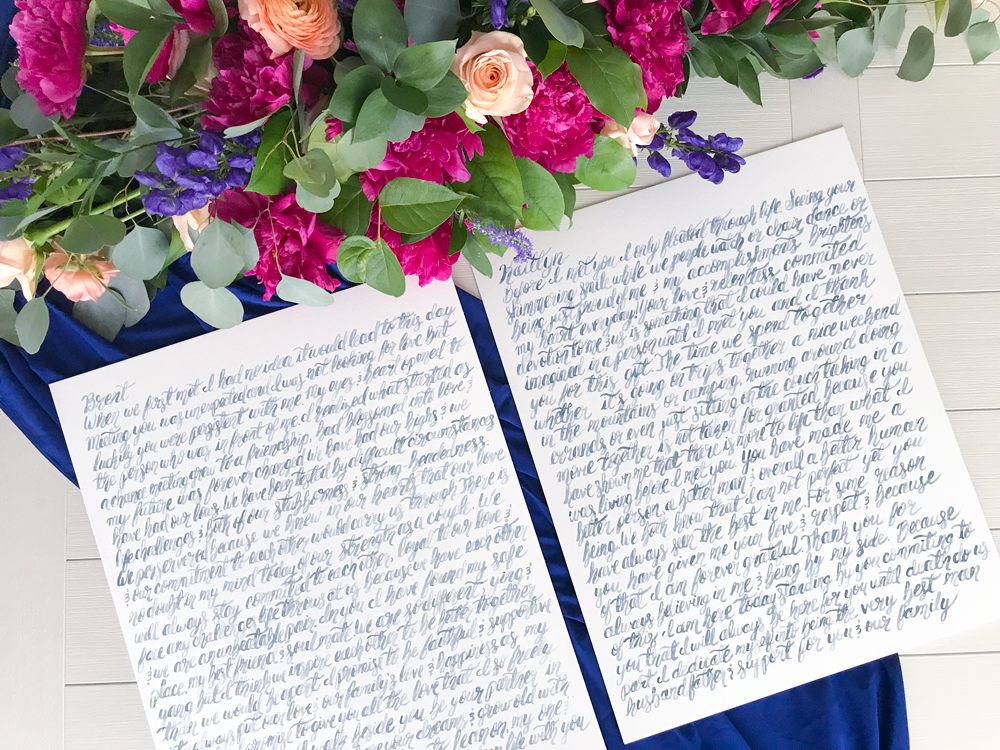 Brent,
When we first met I had no idea it would lead to this day
Meeting you was unexpected and I was not looking for love but
luckily you were persistent with me. My eyes & heart opened to
the person who was in front of me. I realized what started as
a chance meeting grew to a friendship, had blossomed into love &
my future was forever changed. We have had our highs & we
have had our lows. We have been tested by difficult circumstances
life challenges & both of our stubbornness & strong-headedness.
We persevered because we knew in our hearts that our love
& our commitment to each other would carry us through. There is
no doubt in my mind today of our strength as a couple. We
will always stay committed to each other, loyal to our love &
face any challenge life throws at us because we have each other
& we are an unbeatable pair. In you I have found my safe
place, my best friend & soul mate. We are so different ying &
yang but I think we inspire each other to be better together
than we would be apart. I promise to be faithful & supportive
& to always put our love & our family's love & happiness as my
promise to give you all the love that I so freely
walk beside you, be your partner
your dreams & grow old with
to lean on, my one &
life with you
Kaitlyn,
Before I met you, I only floated through life. Seeing your
shimmering smile while we people watch or chair dance or
being just proud of me & my accomplishments brightens
my heart everyday! Your love & relentless committed
devotion to me & us is something that I could have never
imagined in a person until I met you and I thank
you for this gift. The time we spend together
whether it's going on trips together, a nice weekend
in the mountains or camping, running around doing
errands or even just sitting on the couch taking in a
movie together is not taken for granted because you
have shown me that there is more to life than what I
was living before I met you. You have made me a
better person a father man & overall a better human
being. We both know that I am not perfect yet you
have always seen the best in me for some reason
& you have given me your love & respect & because
of that I am forever grateful. Thank you for
always believing in me & being by my side. Because
of this, I am here today standing by you committing to
you that I will always be here for you until death do us
part. I dedicate myself into being the very best man
husband father & support for you & our family